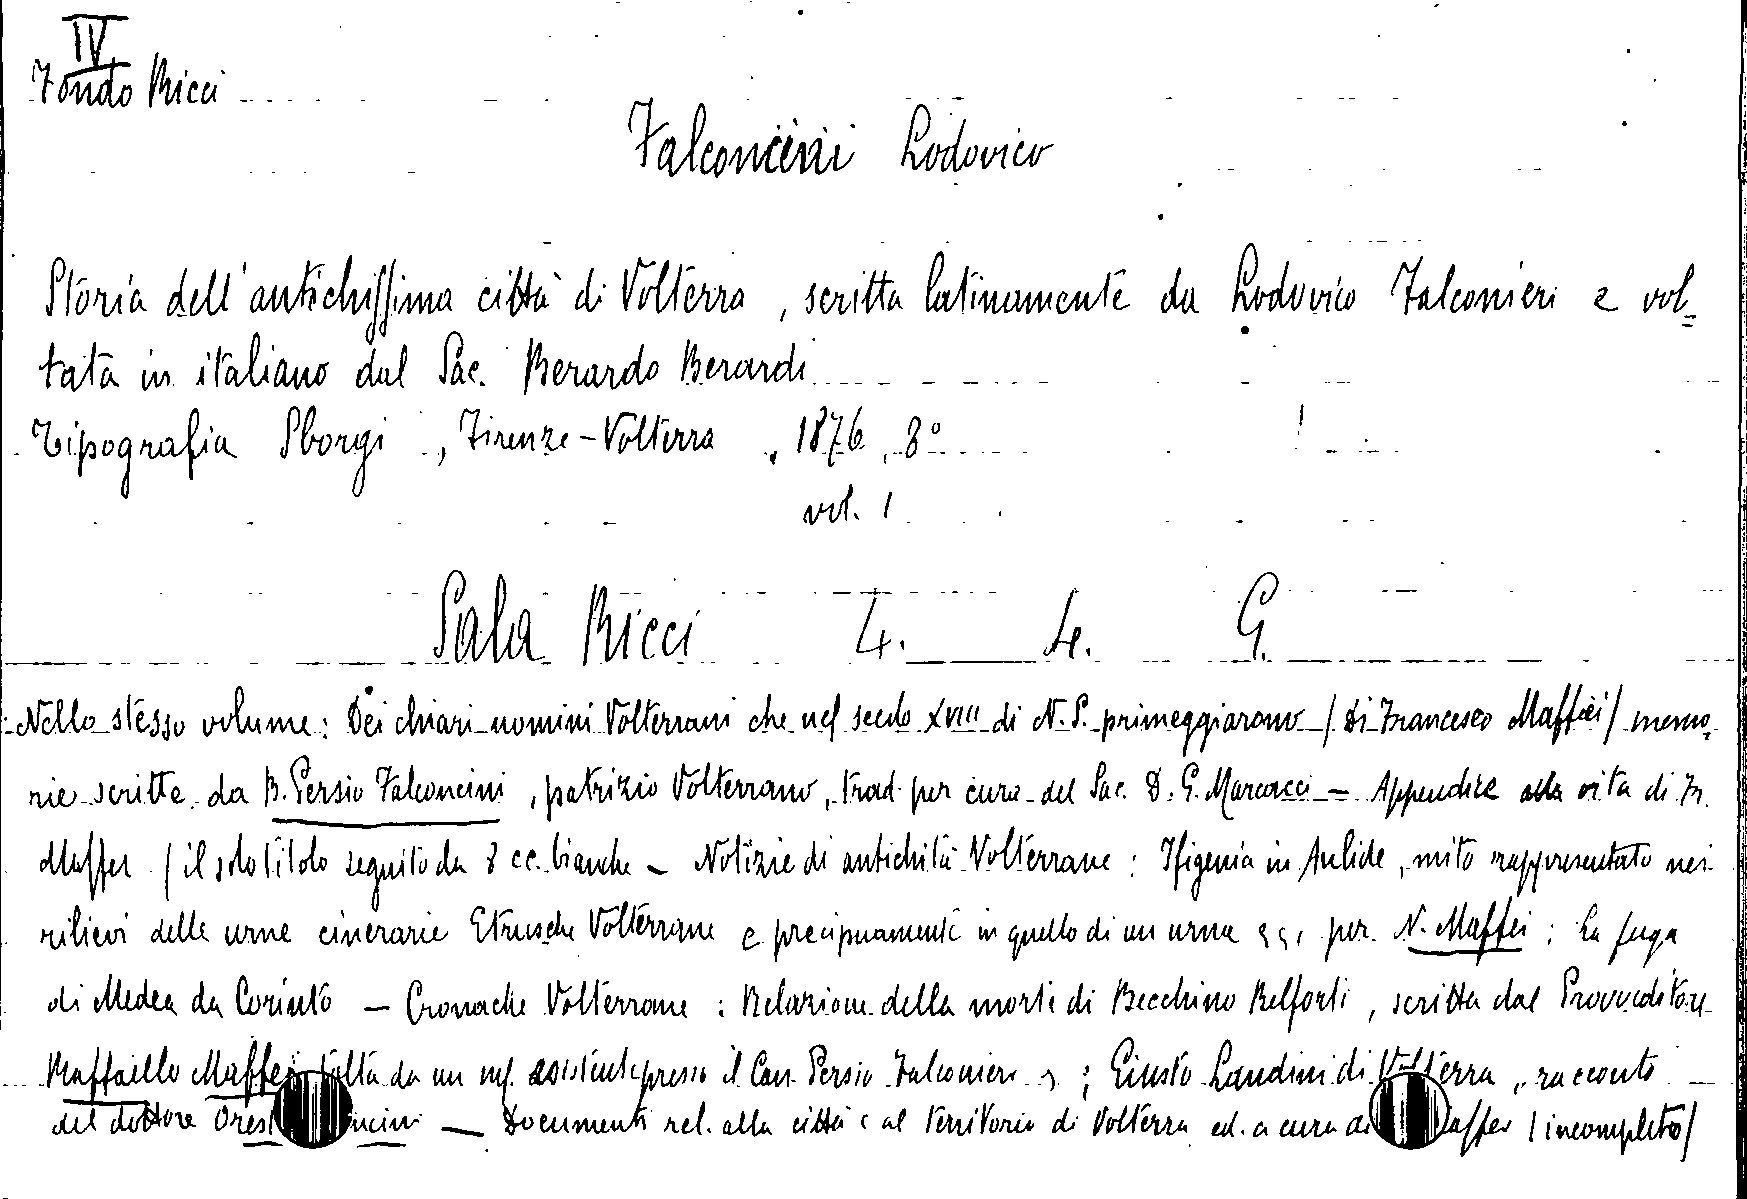 IV
Fondo Ricci
Falconcini Lodovico
Storia dell'antichissima città di Volterra, scritta latinamente da Lodovico Falconieri e vol=
tata in italiano dal Sac. Berardo Berardi
Tipografia Sborgi, Firenze-Volterra, 1876, 8°
vol. 1
Sala Ricci 4. 4. G.
Nello stesso volume: Dei chiari uomini Volterrani che nel secolo XVIII di N. S. primeggiarono / Di Francesco Maffei / memo=
rie scritte da B. Persio Falconcini, patrizio Volterrano, trad. per cura del Sac. D. G. Marcacci — Appendice alla vita di Fr.
Maffei / il solo titolo seguito da 8 cc. bianche — Notizie di antichità Volterrane: Ifigenia in Aulide, mito rappresentato nei
rilievi delle urne cinerarie Etrusche Volterrane e precipuamente in quello di un urna per N. Maffei; La fuga
di Medea da Corinto — Cronache Volterrane: Relazione della morte di Becchino Belforti, scritta dal Provveditore
Raffaello Maffei, tolta da un ms. esistente presso il Can. Persio Falconieri; Giusto Landini di Volterra, racconto
del dottore — Documenti rel. alla città e al territorio di Volterra ed. a cura di / incompleto /